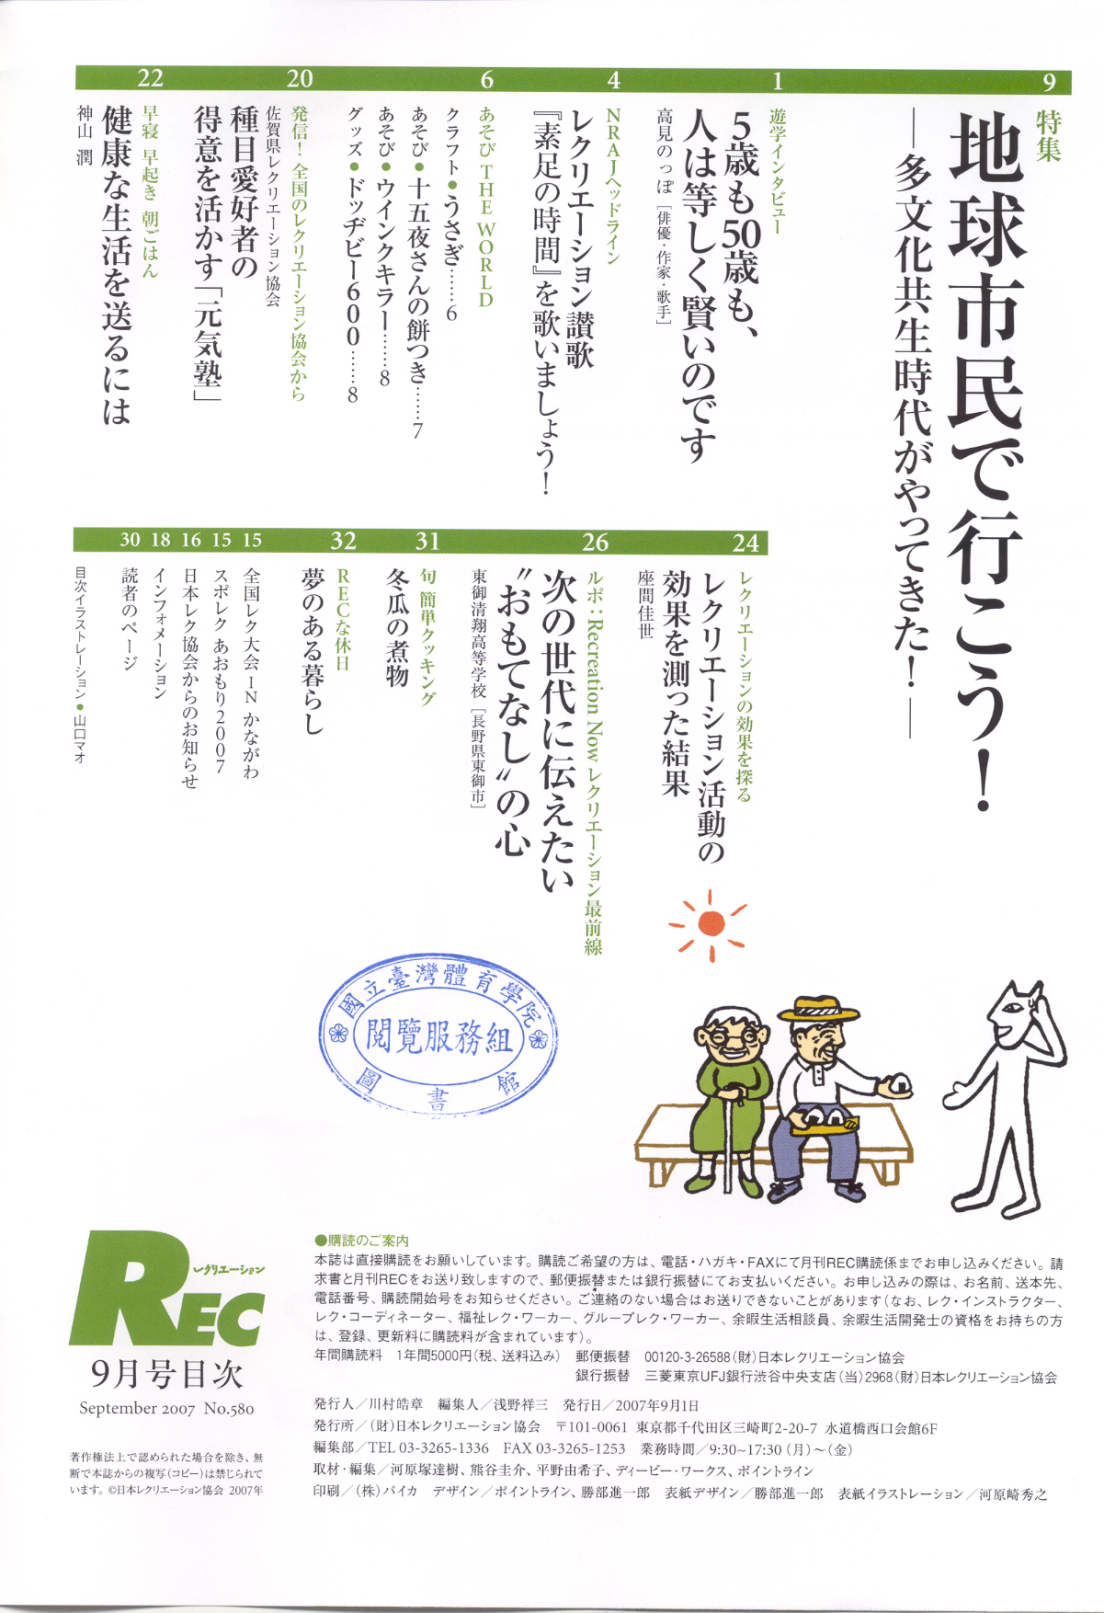 9
特集
地球市民で行こう！
―多文化共生時代がやってきた！―
1
遊学インタビュー
5歳も50歳も、
人は等しく賢いのです
高見のっぽ［俳優・作家・歌手］
4
NRAJヘッドライン
レクリエーション讃歌
『素足の時間』を歌いましょう！
6
あそび THE WORLD
クラフト●うさぎ……6
あそび●十五夜さんの餅つき……7
あそび●ウインクキラー……8
グッズ●ドッヂビー600……8
20
発信！全国のレクリエーション協会から
佐賀県レクリエーション協会
種目愛好者の
得意を活かす「元気塾」
22
早寝 早起き 朝ごはん
健康な生活を送るには
神山 潤
24
レクリエーションの効果を探る
レクリエーション活動の
効果を測った結果
座間佳世
26
ルポ：Recreation Now レクリエーション最前線
次の世代に伝えたい
“おもてなし”の心
東御清翔高等学校［長野県東御市］
31
旬 簡単クッキング
冬瓜の煮物
32
RECな休日
夢のある暮らし
15
全国レク大会 IN かながわ
15
スポレク あおもり2007
16
日本レク協会からのお知らせ
18
インフォメーション
30
読者のページ
目次イラストレーション●山口マオ
國立臺灣體育學院
閱覽服務組
圖書館
レクリエーション
REC
9月号目次
September 2007 No.580
著作権法上で認められた場合を除き、無
断で本誌からの複写（コピー）は禁じられて
います。©日本レクリエーション協会 2007年
●購読のご案内
本誌は直接購読をお願いしています。購読ご希望の方は、電話・ハガキ・FAXにて月刊REC購読係までお申し込みください。請
求書と月刊RECをお送り致しますので、郵便振替または銀行振替にてお支払いください。お申し込みの際は、お名前、送本先、
電話番号、購読開始号をお知らせください。ご連絡のない場合はお送りできないことがあります（なお、レク・インストラクター、
レク・コーディネーター、福祉レク・ワーカー、グループレク・ワーカー、余暇生活相談員、余暇生活開発士の資格をお持ちの方
は、登録、更新料に購読料が含まれています）。
年間購読料 1年間5000円（税、送料込み） 郵便振替 00120-3-26588（財）日本レクリエーション協会
銀行振替 三菱東京UFJ銀行渋谷中央支店（当）2968（財）日本レクリエーション協会
発行人／川村皓章 編集人／浅野祥三 発行日／2007年9月1日
発行所／（財）日本レクリエーション協会 〒101-0061 東京都千代田区三崎町2-20-7 水道橋西口会館6F
編集部／TEL 03-3265-1336 FAX 03-3265-1253 業務時間／9:30~17:30（月）～（金）
取材・編集／河原塚達樹、熊谷圭介、平野由希子、ディービー・ワークス、ポイントライン
印刷／（株）パイカ デザイン／ポイントライン、勝部進一郎 表紙デザイン／勝部進一郎 表紙イラストレーション／河原崎秀之